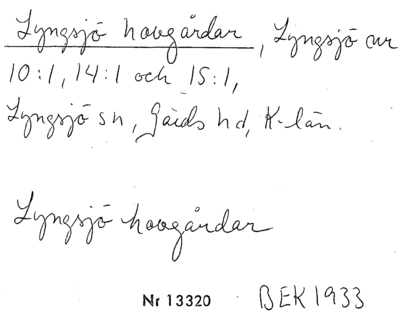 Lyngsjö hovgårdar, Lyngsjö nr
10:1, 14:1 och 15:1,
Lyngsjö sn, Gärds hd, K-län.
Lyngsjö hovgårdar
Nr 13320 BEK 1933